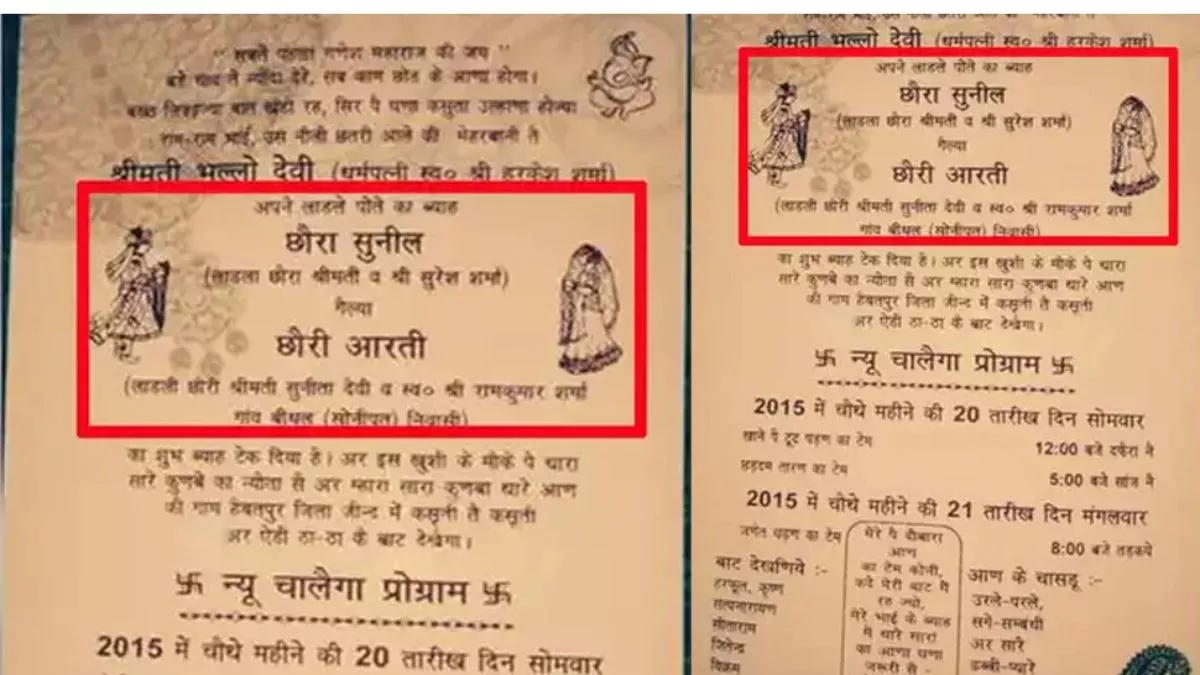 " सबते पहलां गणेश महाराज की जय "
बरे चाव ते न्योंदा देरे, सब काम छोड के आणा होगा।
रह, सिर पै घणा कसुता उल्हाणा होज्या
राम-राम भाई, उस नीली छतरी आले की मेहरबानी तै
श्रीमती भल्लो देवी (धर्मपत्नी स्व० श्री हरकेश शर्मा)
अपने लाडले पोते का ब्याह
छौरा सुनील
(लाडला छोरा श्रीमती व श्री सुरेश शर्मा)
गैल्या
छौरी आरती
(लाडली छोरी श्रीमती सुनीता देवी व स्व० श्री रामकुमार शर्मा
गांव बीधल (सोनीपत) निवासी)
का शुभ ब्याह टेक दिया है। अर इस खुशी के मोके पे थारा
सारे कुणबे का न्योता सै अर म्हारा सारा कुणबा थारे आण
की गाम हैबतपुर जिला जीन्द में कसूती तै कसूती
अर ऐडी ठा-ठा कै बाट देखेगा।
卐 न्यू चालैगा प्रोग्राम 卐
2015 में चौथे महीने की 20 तारीख दिन सोमवार
श्रीमती भल्लो देवी (धर्मपत्नी स्व० श्री हरकेश शर्मा)
अपने लाडले पोते का ब्याह
छौरा सुनील
(लाडला छोरा श्रीमती व श्री सुरेश शर्मा)
गैल्या
छौरी आरती
(लाडली छोरी श्रीमती सुनीता देवी व स्व० श्री रामकुमार शर्मा
गांव बीधल (सोनीपत) निवासी)
का शुभ ब्याह टेक दिया है। अर इस खुशी के मोके पे थारा
सारे कुणबे का न्योता सै अर म्हारा सारा कुणबा थारे आण
की गाम हैबतपुर जिला जीन्द में कसूती तै कसूती
अर ऐडी ठा-ठा कै बाट देखेगा।
卐 न्यू चालैगा प्रोग्राम 卐
2015 में चौथे महीने की 20 तारीख दिन सोमवार
खाने पै टूट पड़ण का टेम 12:00 बजे दफैरा नै
तारण का टेम 5:00 बजे सांज नै
2015 में चौथे महीने की 21 तारीख दिन मंगलवार
चढ़ण का टेम 8:00 बजे तड़कये
बाट देखणिये :-
हरफूल, कृष्ण
सत्यनारायण
सीताराम
जितेन्द्र
विक्रम
मेरे पै दौबारा
आण
का टेम कोनी,
कदे मेरी बाट मै
रह ज्यो,
मेरे भाई के ब्याह
में थारे सारां
का आणा घणा
जरूरी सै -
आण के चासडू :-
उरले-परले,
सगे-सम्बंधी
अर सारे
डब्बी-प्यारे